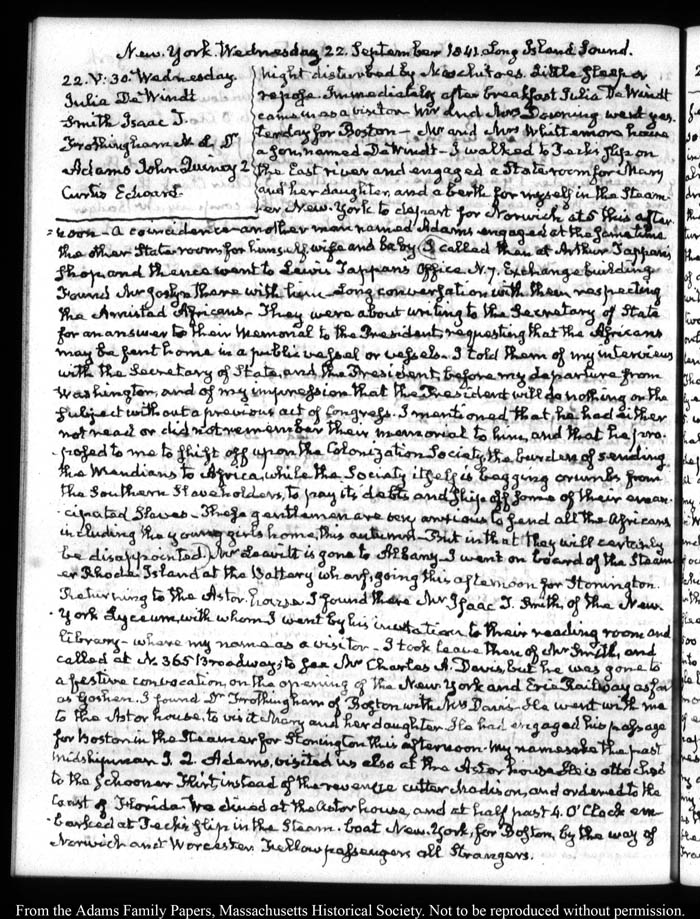 New. York. Wednesday 22. September 1841. Long Island Sound.
22. V: 30. Wednesday.
Julia De Windt
Smith Isaac T.
Frothingham N. L. Dr
Adams John Quincy 2
Curtis Edward.
Night disturbed by Moschitoes. Little sleep or
repose. Immediately after breakfast Julia De Windt
came in as a visitor. Mr and Mrs Downing went yes-
terday for Boston - Mr and Mrs Whittemore have
a son, named De Windt - I walked to Peck's slip on
the East river and engaged a State room for Mary
and her daughter, and a berth for myself in the Steam-
er New. York to depart for Norwich at 5 this after-
noon - a coincidence - another man named Adams engaged at the same time
the other State-room for himself wife and baby. I called then at Arthur Tappan's
shop, and thence went to Lewis Tappan's Office N. 7. Exchange building
Found Mr Joslyn there with him - Long conversation with them respecting
the Amistad Africans - They were about writing to the Secretary of State
for an answer to their Memorial to the President, requesting that the Africans
may be sent home in a public vessel or vessels - I told them of my interviews
with the Secretary of State, and the President, before my departure from
Washington, and of my impression that the President will do nothing on the
subject without a previous act of Congress. I mentioned that, he had either
not read or did not remember their memorial to him, and that he pro-
posed to me to shift off upon the Colonization Society, the burden of sending
the Mendians to Africa, while the Society itself is begging crumbs from
the Southern Slaveholders, to pay its debts and ship off some of their eman-
cipated Slaves - These gentlemen are very anxious to send all the Africans
including the young girls home, this autumn - But in that they will certainly
be disappointed. Mr Leavitt is gone to Albany - I went on board of the Steam-
er Rhode. Island at the Battery wharf, going this afternoon for Stonington.
Returning to the Astor. house. I found there Mr Isaac T. Smith, of the New.
York Lyceum, with whom I went by his invitation to their reading room and
library - where my name as a visitor - I took leave there of Mr Smith, and
called at N. 365 Broadway, to see Mr Charles A. Davis, but he was gone to
a festive convocation, on the opening of the New York and Erie Railway as far
as Goshen. I found Dr Frothingham of Boston with Mrs Davis - He went with me
to the Astor house, to visit Mary and her daughter. He had engaged his passage
for Boston in the Steamer for Stonington this afternoon. My namesake the past
midshipman J. Q. Adams, visited us also at the Astor house. He is attached
to the Schooner Flirt, instead of the revenue cutter Madison, and ordered to the
Coast of Florida. We dined at the Astor house, and at half past 4. O'Clock em-
barked at Peck's slip in the Steam. boat New. York, for Boston, by the way of
Norwich and Worcester. Fellow passengers all Strangers.
From the Adams Family Papers, Massachusetts Historical Society. Not to be reproduced without permission.